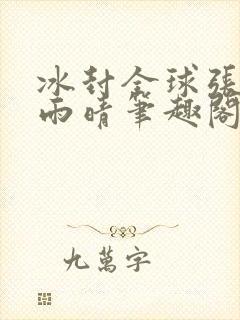 冰封全球張
雨晴筆趣閣
九萬字